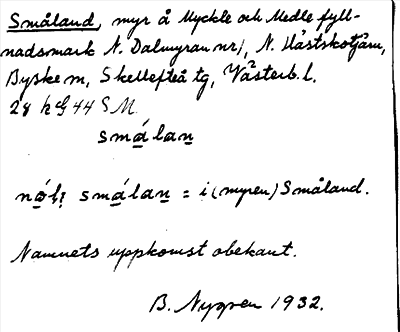 Småland, myr å Myckle och Medle fyll-
nadsmark N. Dalmyran nr 1, N. Hästskotjärn,
Byske sn, Skellefteå tg, Västerb. l.
28 h G 44 S M.
smálan
i (myren) Småland.
Namnets uppkomst obekant.
B. Nygren 1932.